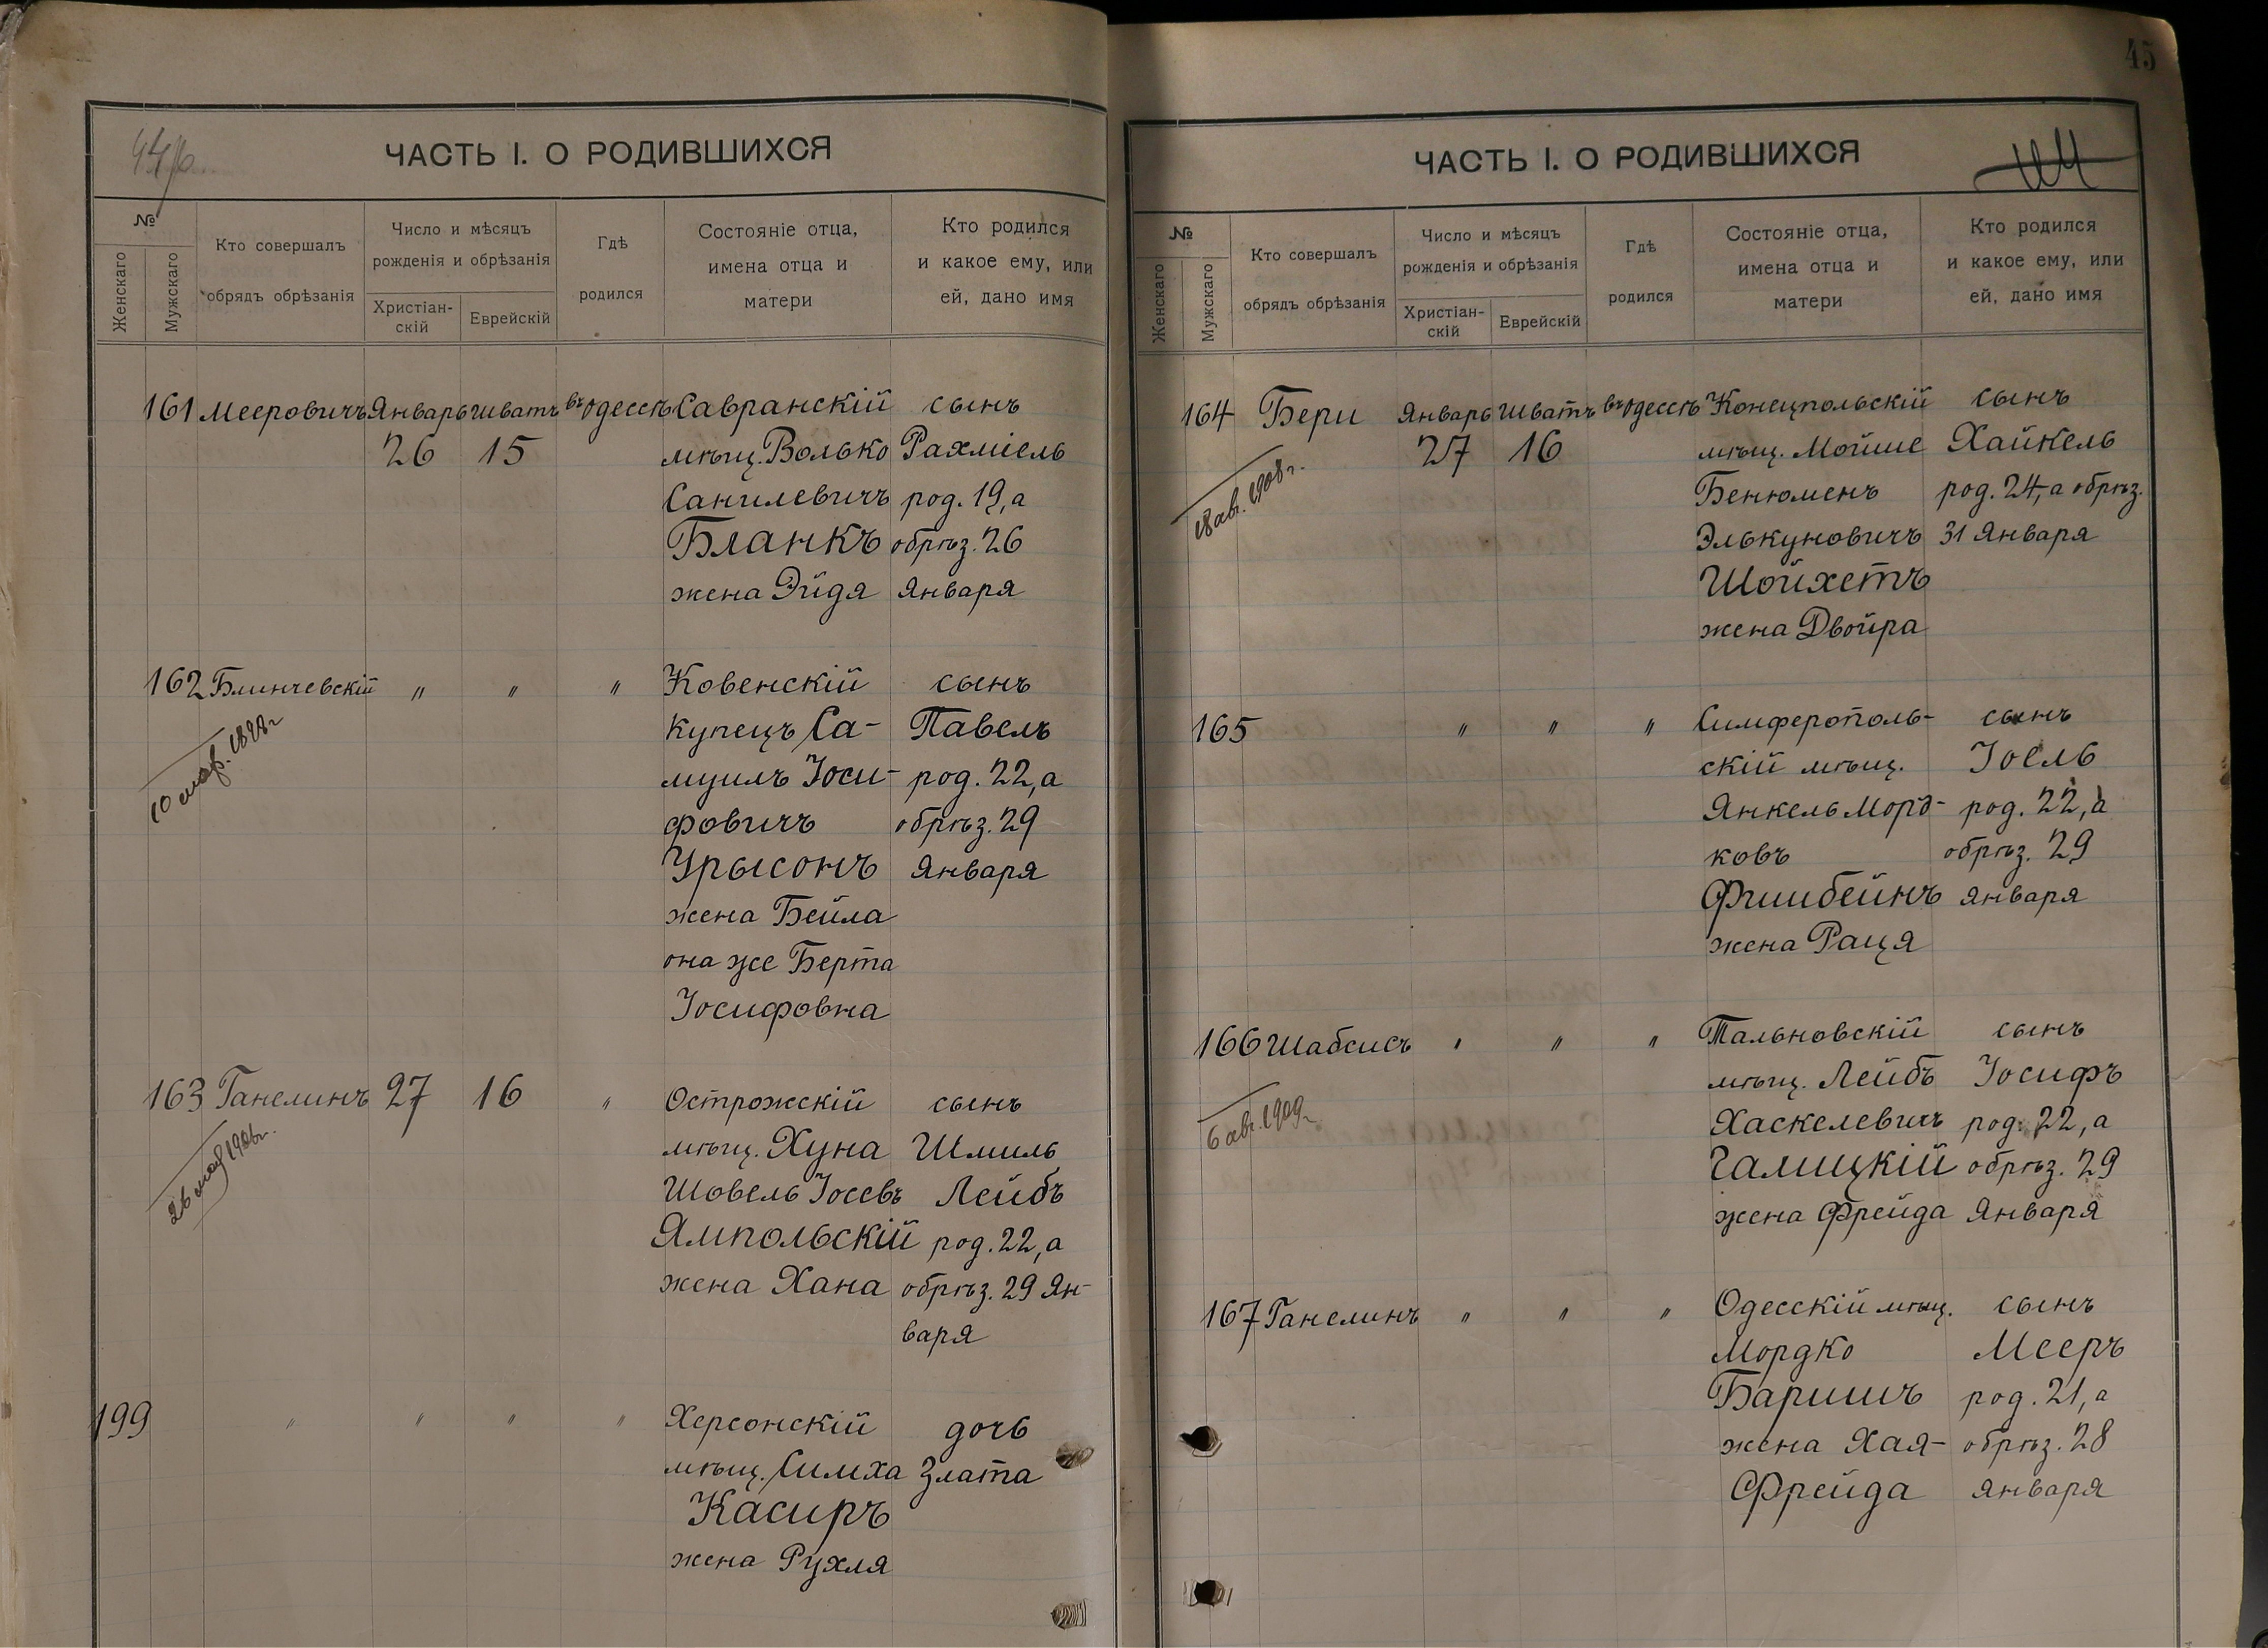 44об
ЧАСТЬ I. О РОДИВШИХСЯ
№
Женскаго
Мужскаго
Кто совершалъ
обрядъ обрѣзанія
Число и мѣсяцъ
рожденія и обрѣзанія
Христіан-
скій
Еврейскій
Гдѣ
родился
Состояніе отца,
имена отца и
матери
Кто родился
и какое ему, или
ей, дано имя
161 Мееровичъ Январь Шватъ въ Одессѣ Савранскій сынъ
26 15 мѣщ. Волько Рахміель
Санилевичъ род. 19, а
Бланкъ обрѣз. 26
жена Эйдя Января
162 Блинчевскій " " " Ковенскій сынъ
10 мар. 1898 г
купецъ Са- Павелъ
муилъ Іоси- род. 22, а
фовичъ обрѣз. 29
Урысонъ Января
жена Бейла
она же Берта
Іосифовна
163 Ганелинъ 27 16 " Острожскій сынъ
26 мая 1906 г.
мѣщ. Хуна Шмиль
Шовель Іосевъ Лейбъ
Ямпольскій род. 22, а
жена Хана обрѣз. 29 Ян-
варя
199 " " " " Херсонскій дочь
мѣщ. Симха Злата
Касиръ
жена Рухля
45
ЧАСТЬ I. О РОДИВШИХСЯ
№
Женскаго
Мужскаго
Кто совершалъ
обрядъ обрѣзанія
Число и мѣсяцъ
рожденія и обрѣзанія
Христіан-
скій
Еврейскій
Гдѣ
родился
Состояніе отца,
имена отца и
матери
Кто родился
и какое ему, или
ей, дано имя
164 Бери Январь Шватъ въ Одессѣ Конецпольскій сынъ
18 ав. 1908 г.
27 16 мѣщ. Мойше Хайкель
Бенюменъ род. 24, а обрѣз.
Элькуновичъ 31 Января
Шойхетъ
жена Двойра
165 " " " Симферополь- сынъ
скій мѣщ. Іоель
Янкель Морд- род. 22, а
ковъ обрѣз. 29
Фишбейнъ Января
жена Раця
166 Шабсисъ " " " Тальновскій сынъ
6 авг. 1909 г.
мѣщ. Лейбъ Іосифъ
Хаскелевичъ род. 22, а
Галицкій обрѣз. 29
жена Фрейда Января
167 Ганелинъ " " " Одесскій мѣщ. сынъ
Мордко Мееръ
Баришъ род. 21, а
жена Хая- обрѣз. 28
Фрейда Января